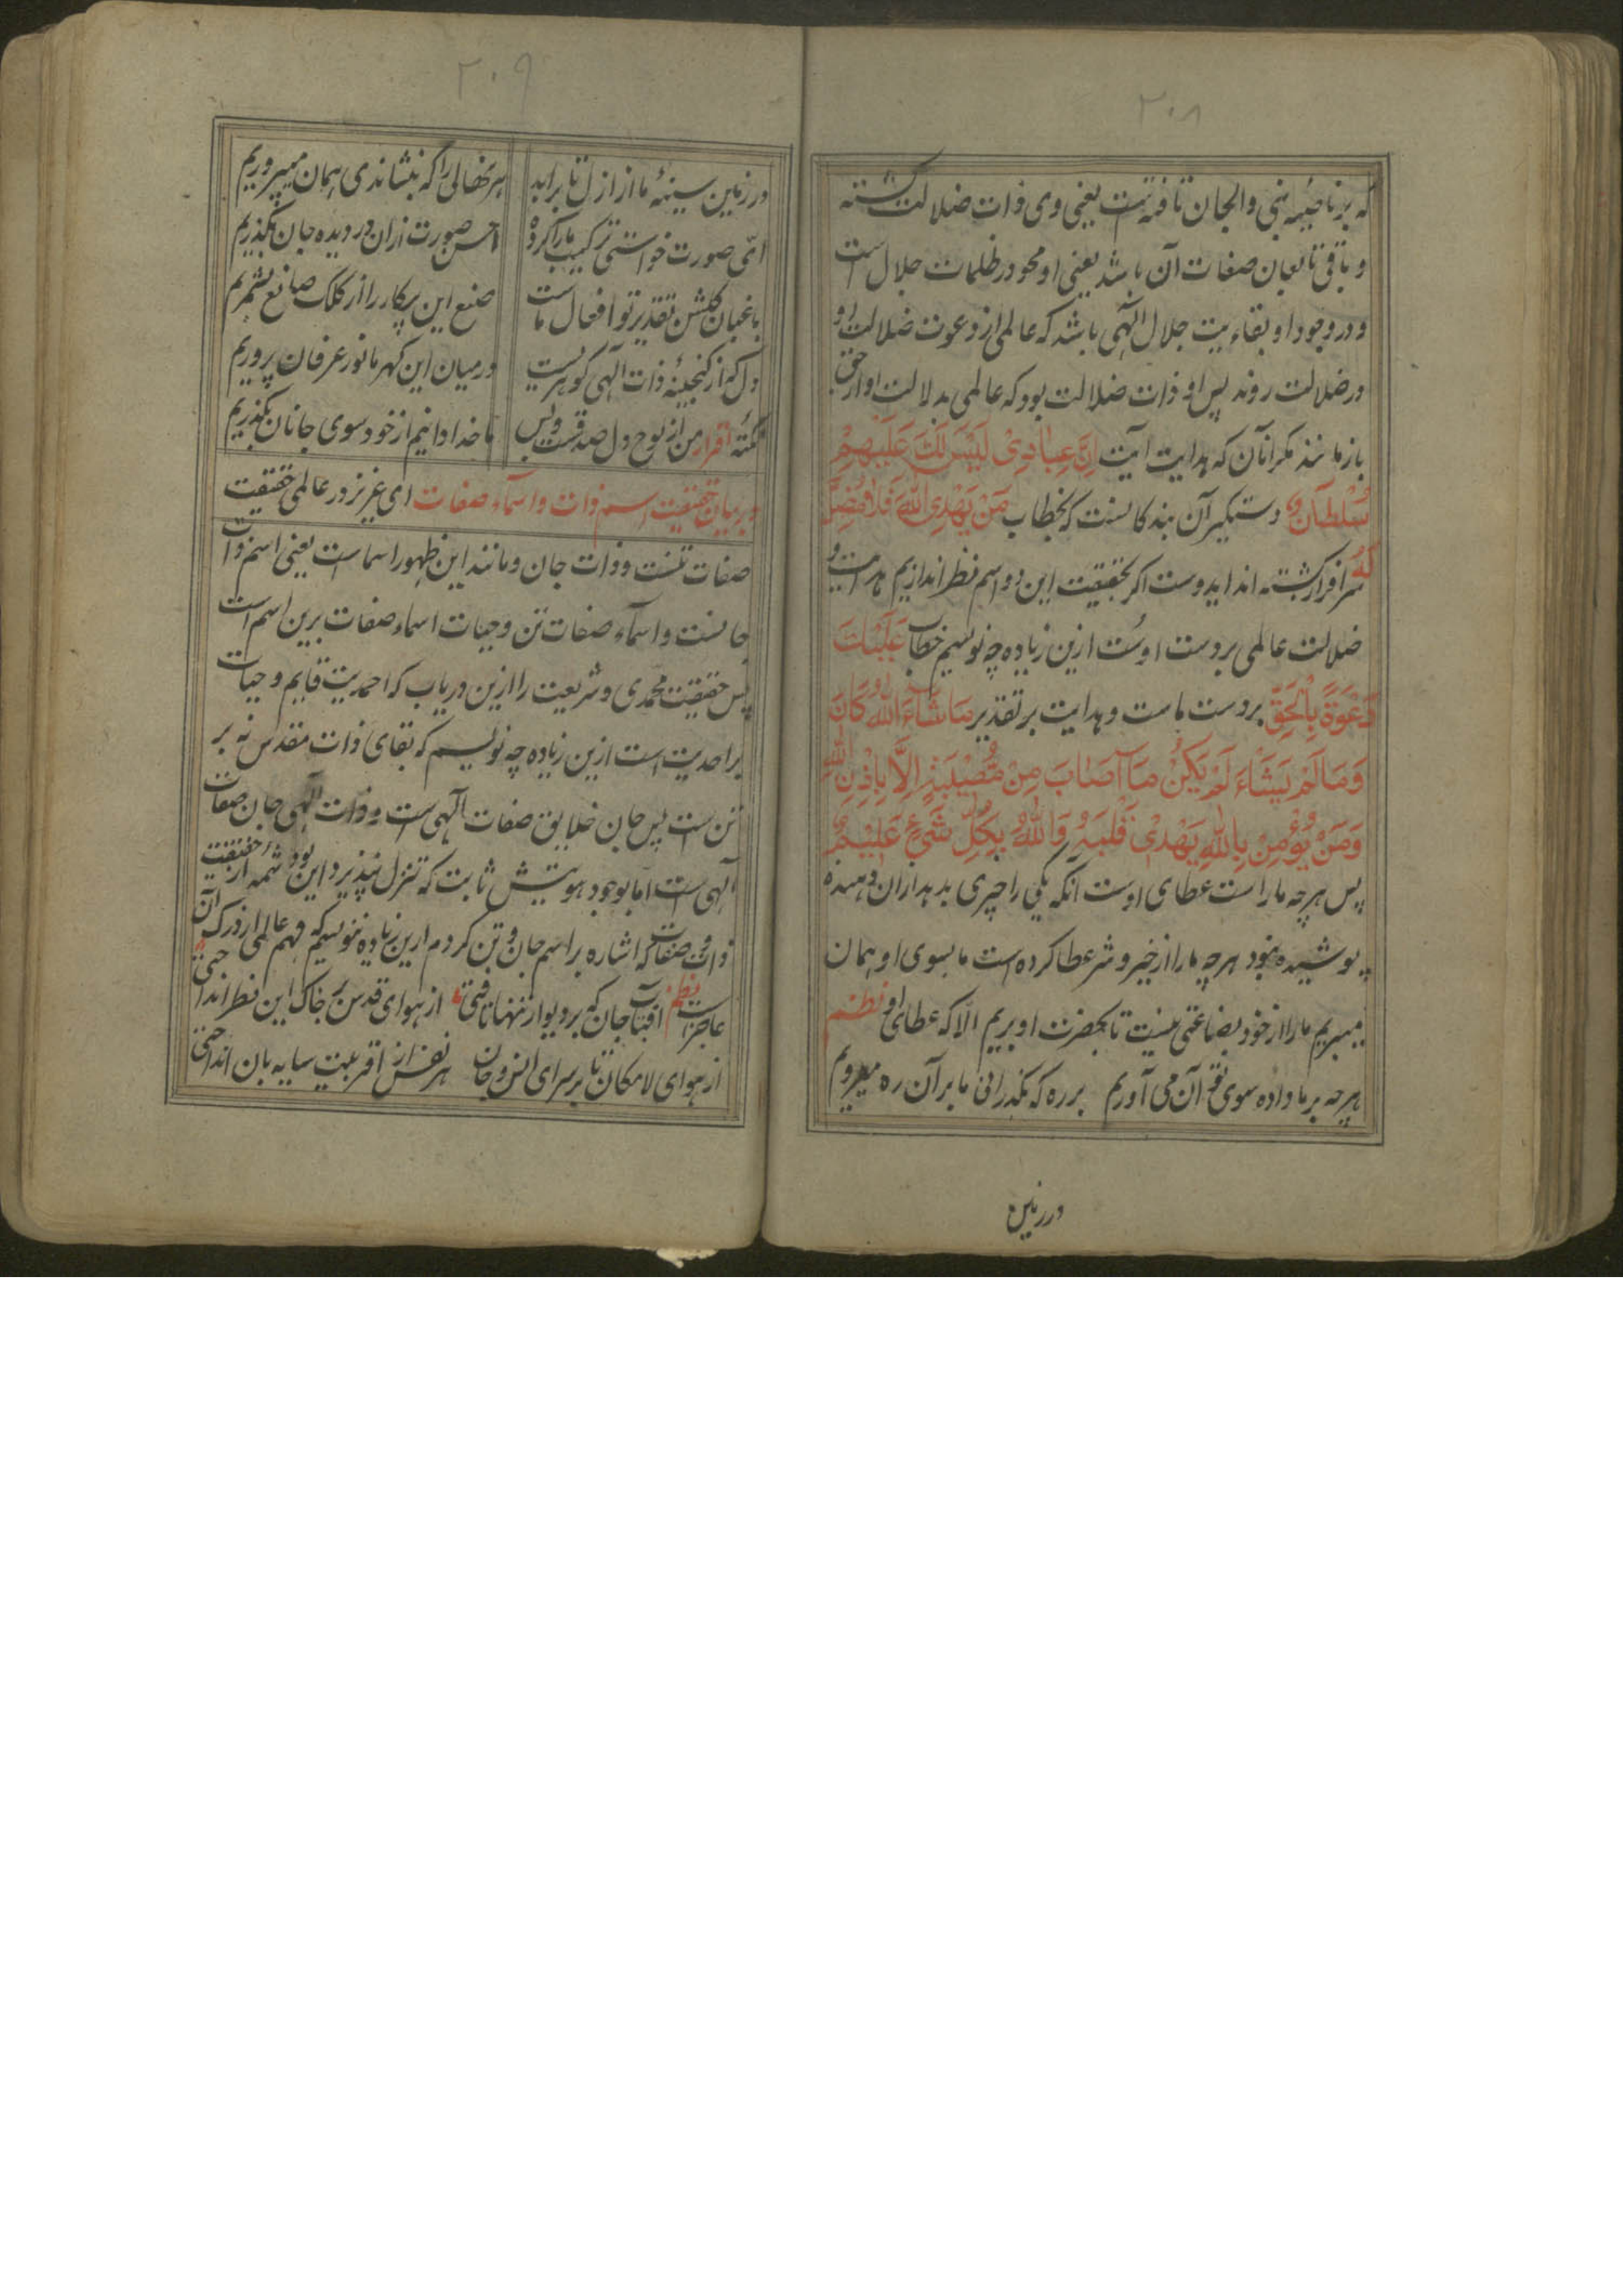 ۲۰۸
که بر ناصیه بنی والجان تافته است یعنی وی ذات ضلالت گشته
و باقی تابعان صفات آن باشد یعنی او محو در ظلمات جلال است
و در وجود او بقاء بیت جلال الهی باشد که عالمی از دعوت ضلالت او
در ضلالت روند پس او ذات ضلالت بود که عالمی بدلالت او از حق
باز مانند مکر آنان که هدایت آیت اِنَّ عِبادِیْ لَیْسَ لَکَ عَلَیْهِمْ
سُلْطانٌ دستگیر آن بندکانست که بخطاب مَنْ یَهْدِی اللهُ فَلا مُضِلَّ
لَهُ سرافراز گشته اند ایدوست اکر بحقیقت این دو اسم نظر اندازیم هدایت و
ضلالت عالمی بردست اوست ازین زیاده چه نویسیم خطاب عَلَیْکَ
دَعْوَةً بِالْحَقِّ بردست ماست و هدایت بر تقدیر مَا شَاءَ اللهُ کَانَ
وَمَا لَمْ یَشَاءْ لَمْ یَکُنْ مَا اَصَابَ مِنْ مُصِیْبَةٍ اِلَّا بِاِذْنِ اللهِ
وَمَنْ یُؤْمِنْ بِاللهِ یَهْدِیْ قَلْبَهُ وَاللهُ بِکُلِّ شَیْءٍ عَلِیْمٌ
پس هرچه ما راست عطای اوست آنکه یکی را چیزی بدهد از آن دهنده
پوشیده نبود هرچه ما را از خیر و شر عطا کرده است ما بسوی او همان
میبریم ما را از خود بضاعتی نیست تا بحضرت او بریم الّا که عطای او نظم
هرچه بر ما داده سوی تو آن می آوریم برره که بگذرانی ما بر آن ره میرویم
در زمین
۲۰۹
در زمین سینهٔ ما از ازل تا بر ابد هر نهالی را که بنشاندی همان میپروریم
ای صورت خواستی ترکیب ما را کرده احسن صورت ازان در دیده جان بگذریم
باغبان گلشن تقدیر تو افعال ماست صنع این پرکار را از کلک صانع بشمریم
دل که از گنجینهٔ ذات الهی گوهریست در میان این گهر ما نور عرفان پروریم
نکتهٔ اقرار من از لوح دل صدقست و بس ما خدا دانیم از خود سوی جانان بگذریم
در بیان حقیقت اسم ذات و اسماء صفات ای عزیز در عالمی حقیقت
صفات تنست و ذات جان و مانند این ظهور اسماست یعنی اسم ذات
جانست و اسماء صفات تن و حیات اسماء صفات برین اسم است
پس حقیقت محمدی و شریعت را ازین دریاب که احمدیت قایم و حیات
بر احدیت است ازین زیاده چه نویسیم که بقای ذات مقدس نه بر
تن است پس جان خلایق صفات الهی است و ذات الهی جان صفات
الهی است اما بوجود هویتش ثابت که تنزل نپذیرد این بود شمه از حقیقت
ذات و صفات که اشاره بر اسم جان و تن کردم ازین زیاده ننویسم که فهم عالمی از درک آن
عاجز است نظم آفتاب جان که بر دیوار تنها تافتی از هوای قدس بر خاک این نظر انداختی
از هوای لامکان تا بر سرای انس و جان هر نفس از اقربیت سایه بان انداختی